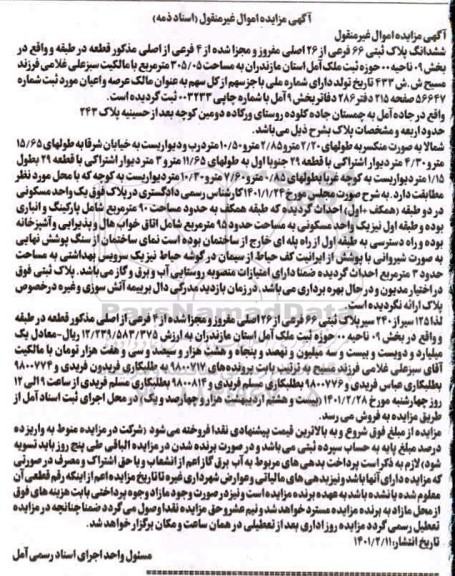 آگهی مزایده اموال غیرمنقول (اسناد ذمه)
آگهی مزایده اموال غیرمنقول
ششدانگ پلاک ثبتی ۶۶ فرعی از ۲۶ اصلی مفروز و مجزا شده از ۴ فرعی از اصلی مذکور قطعه در طبقه و واقع در
بخش ۰۹ ناحیه ۰۰ حوزه ثبت ملک آمل استان مازندران به مساحت ۳۰۵/۰۵ مترمربع با مالکیت سبزعلی غلامی فرزند
مسیح ش.ش ۴۳۳ تاریخ تولد دارای شماره ملی با جز سهم از کل سهم به عنوان مالک عرصه و اعیان مورد ثبت شماره
۵۶۶۴۷ صفحه ۲۱۵ دفتر ۲۸۶ دفاتر بخش ۹ آمل با شماره چاپی ۰۰۳۲۳۳ ثبت گردیده است.
واقع در جاده آمل به چمستان جاده کلوده روستای ورکاده دومین کوچه بعد از حسینیه پلاک ۲۴۳
حدود اربعه و مشخصات پلاک بشرح ذیل می‌باشد.
شمالا به صورت منکسر به طولهای ۲/۲۰ مترو ۲/۸۵ مترو ۱۰/۵۰ متر درب و دیواریست به خیابان شرقا به طولهای ۱۵/۶۵
مترو ۴/۳۰ متر دیوار اشتراکی با قطعه ۲۹ جنوبا اول به طولهای ۱۱/۶۵ مترو ۳ متر دیوار اشتراکی با قطعه ۲۹ بطول
۱/۱۵ متر دیواریست به کوچه غربا بطولهای ۰/۸۵ مترو ۷/۶۰ مترو ۱۰/۳۰ متر دیواریست به کوچه که با محل مورد نظر
مطابقت دارد. به شرح صورت مجلس مورخ ۱۴۰۱/۱/۲۴ کارشناس رسمی دادگستری در پلاک فوق یک واحد مسکونی
در دو طبقه (همکف + اول) احداث گردیده که طبقه همکف به حدود مساحت ۹۰ مترمربع شامل پارکینگ و انباری
بوده و طبقه اول نیز یک واحد مسکونی به مساحت حدود ۹۵ مترمربع شامل اتاق خواب هال و پذیرایی و آشپزخانه
بوده و راه دسترسی به طبقه اول از راه پله ای خارج از ساختمان بوده است نمای ساختمان از سنگ پوشش نهایی
به صورت شیروانی با پوشش از ایرانیت کف حیاط از سیمان در گوشه حیاط نیز یک سرویس بهداشتی به مساحت
حدود ۳ مترمربع احداث گردیده ضمنا دارای امتیازات منصوبه روستایی آب و برق و گاز می‌باشد. پلاک ثبتی فوق
در اختیار مدیون و در حال بهره برداری می باشد. در زمان بازدید مدرکی دال بر بیمه آتش سوزی و غیره درخصوص
پلاک ارائه نگردیده است.
لذا ۱۲۵ سیر از ۲۴۰ سیر پلاک ثبتی ۶۶ فرعی از ۲۶ اصلی مفروز و مجزا شده از ۴ فرعی از اصلی مذکور قطعه در طبقه
و واقع در بخش ۰۹ ناحیه ۰۰ حوزه ثبت ملک آمل استان مازندران به ارزش ۱۲/۲۳۹/۵۸۳/۳۷۵ ریال-معادل یک
میلیارد و دویست و بیست و سه میلیون و نهصد و پنجاه و هشت هزار و سیصد و سی و هفت هزار تومان با مالکیت
آقای سبزعلی غلامی فرزند مسیح به ترتیب بابت پرونده‌های ۹۸۰۰۷۱۷ به طلبکاری فریدون فریدی و ۹۸۰۰۷۷۴
بطلبکاری عباس فریدی و ۹۸۰۰۷۷۶ بطلبکاری مسلم فریدی و ۹۸۰۰۸۱۴ بطلبکاری مسلم فریدی از ساعت ۹ الی ۱۲
روز چهارشنبه مورخ ۱۴۰۱/۲/۲۸ (بیست و هشتم اردیبهشت هزار و چهارصد و یک) در محل اجرای ثبت اسناد آمل از
طریق مزایده به فروش می رسد.
مزایده از مبلغ فوق شروع و به بالاترین قیمت پیشنهادی نقدا فروخته می شود (شرکت در مزایده منوط به واریز ده
درصد مبلغ پایه به حساب سپرده ثبتی می باشد و در صورت برنده شدن در مزایده الباقی طی پنج روز باید تسویه
شود) لازم به ذکر است پرداخت بدهی های مربوط به آب برق گاز اعم از انشعاب و یا حق اشتراک و مصرف در صورتی
که مزایده دارای آنها باشد و نیز بدهی های مالیاتی و عوارض شهرداری غیره تا تاریخ مزایده اعم از اینکه رقم قطعی آن
معلوم شده یا نشده باشد به عهده برنده مزایده است و نیز در صورت وجود مازاد وجوه پرداختی بابت هزینه های فوق
از محل مازاد به برنده مزایده مسترد خواهد شد و نیم عشر و حق مزایده نقدا وصول می گردد ضمنا چنانچه در مزایده
تعطیل رسمی گردد مزایده روز اداری بعد از تعطیلی در همان ساعت و مکان برگزار خواهد شد.
تاریخ انتشار: ۱۴۰۱/۲/۱۱
مسئول واحد اجرای اسناد رسمی آمل